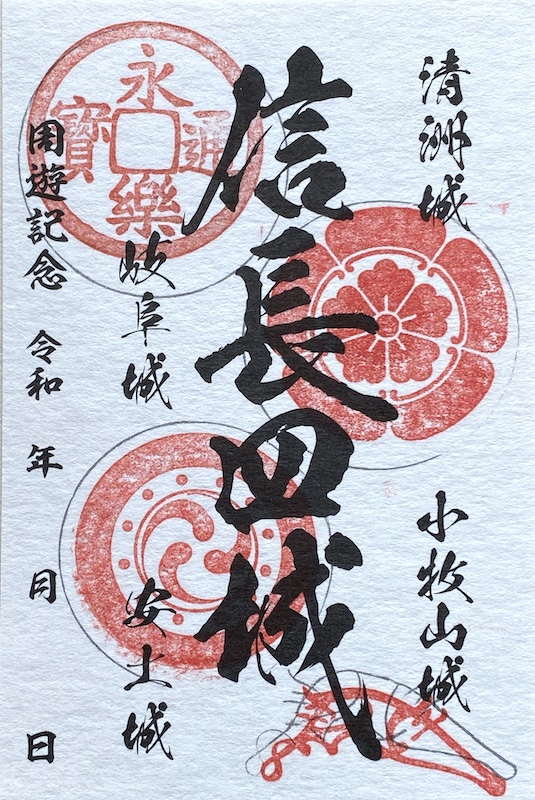 清洲城
小牧山城
信長四城
岐阜城
安土城
周遊記念 令和 年 月 日
永樂通寳